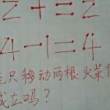 2+2=
4-1=4
只移动两根火柴
成立吗？